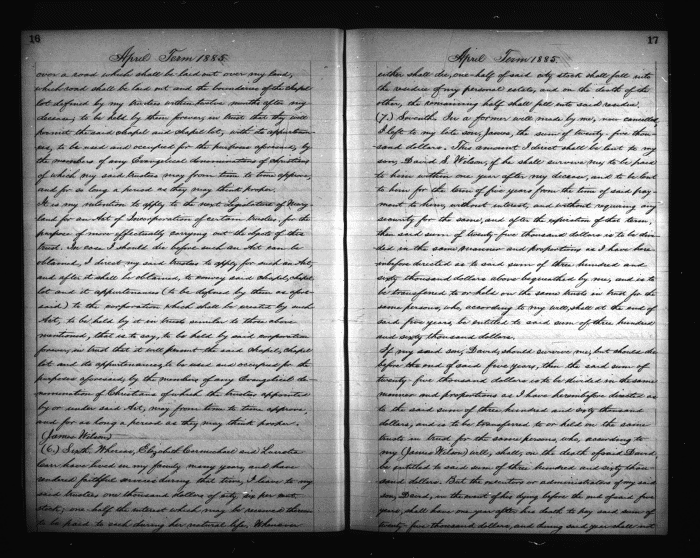 16
April Term 1885.
over a road which shall be laid out over my land,
which road shall be laid out and the boundaries of the chapel
lot defined by my trustees within twelve months after my
decease, to be held by them forever, in trust that they will
permit the said chapel and chapel lot, with its appurtenan-
ces, to be used and occupied for the purposes aforesaid, by
the members of any Evangelical denomination of christians
of which my said trustees may from time to time approve,
and for so long a period as they may think proper.
It is my intention to apply to the next Legislature of Mary-
land for an Act of Incorporation of certain trustees, for the
purpose of more effectually carrying out the objects of this
trust. In case I should die before such an Act can be
obtained, I direct my said trustees to apply for such an Act,
and after it shall be obtained, to convey said chapel, chapel
lot and it appurtenances (to be defined by them as afore-
said) to the corporation which shall be created by such
Act, to be held by it in trusts similar to those above
mentioned, that is to say, to be held by said corporation
forever, in trust that it will permit the said chapel, chapel
lot and its appurtenances, to be used and occupied for the
purposes aforesaid, by the members of any Evangelical de-
nomination of Christians of which the trustees appointed
by or under said Act, may from time to time approve,
and for as long a period as they may think proper.
(James Wilson)
(6.) Sixth. Whereas, Elizabeth Carmichael and
have lived in my family many years, and have
rendered faithful services during that time, I leave to my
said trustees one thousand dollars of city six per cent
stock; one half the interest which may be received them
to be paid to each during her natural life. Whenever
17
April Term 1885.
either shall die, one-half of said city stock shall fall into
the residue of my personal estate, and on the death of the
other, the remaining half shall fall into said residue.
(7.) Seventh. In a former will made by me, now cancelled,
I left to my late son, James, the sum of twenty-five thou-
sand dollars. This amount I direct shall be lent to my
son, David S. Wilson, if he shall survive me, to be paid
to him within one year after my decease, and to be lent
to him for the term of five years from the time of said pay-
ment to him, without interest, and without requiring any
security for the same, and after the expiration of this term,
the said sum of twenty-five thousand dollars is to be divi-
ded in the same manner and proportions as I have here-
inbefore directed as to said sum of three hundred and
sixty thousand dollars above bequeathed by me, and is to
be transferred to or held on the same trusts in trust for the
same persons, who, according to my will, shall at the end of
said five years, be entitled to said sum of three hundred
and sixty thousand dollars.
If my said son, David, should survive me, but should die
before the end of said five years, then the said sum of
twenty five thousand dollars is to be divided in the same
manner and proportions as I have hereinbefore directed as
to the said sum of three hundred and sixty thousand
dollars, and is to be transferred to or held on the same
trusts in trust for the same persons, who, according to
my (James Wilson) will, shall, on the death of said David,
be entitled to said sum of three hundred and sixty thou-
sand dollars. But the executors or administrators of my said
son, David, in the event of his dying before the end of said five
years, shall have one year after his death to pay said sum of
twenty five thousand dollars, and during said year shall not